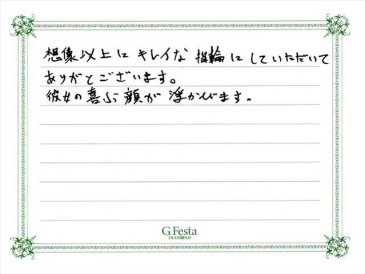 想像以上にキレイな指輪にしていただいて
ありがとございます。
彼女の喜ぶ顔が浮かびます。
G.Festa
DIAMOND